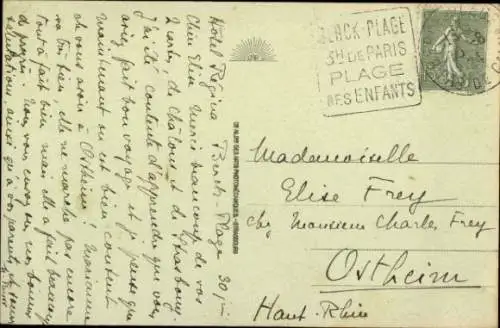 Hôtel Regina Berck-Plage 30 juin
Chère Elise Merci beaucoup de vos
2 cartes, de Châlons et de Strasbourg.
J'ai été contente d'apprendre que vous
avez fait bon voyage et je pense que
maintenant on est bien content
de vous avoir à Ostheim! Marianne
va très bien, elle ne marche pas encore
tout à fait bien mais elle a fait beaucoup
de progrès. Nous vous envoyons nos bonnes
salutations, ainsi qu'à vos parents, et
BERCK-PLAGE
3H DE PARIS
PLAGE
DES ENFANTS
Mademoiselle
Elise Frey
chez Monsieur Charles Frey
Ostheim
Haut-Rhin